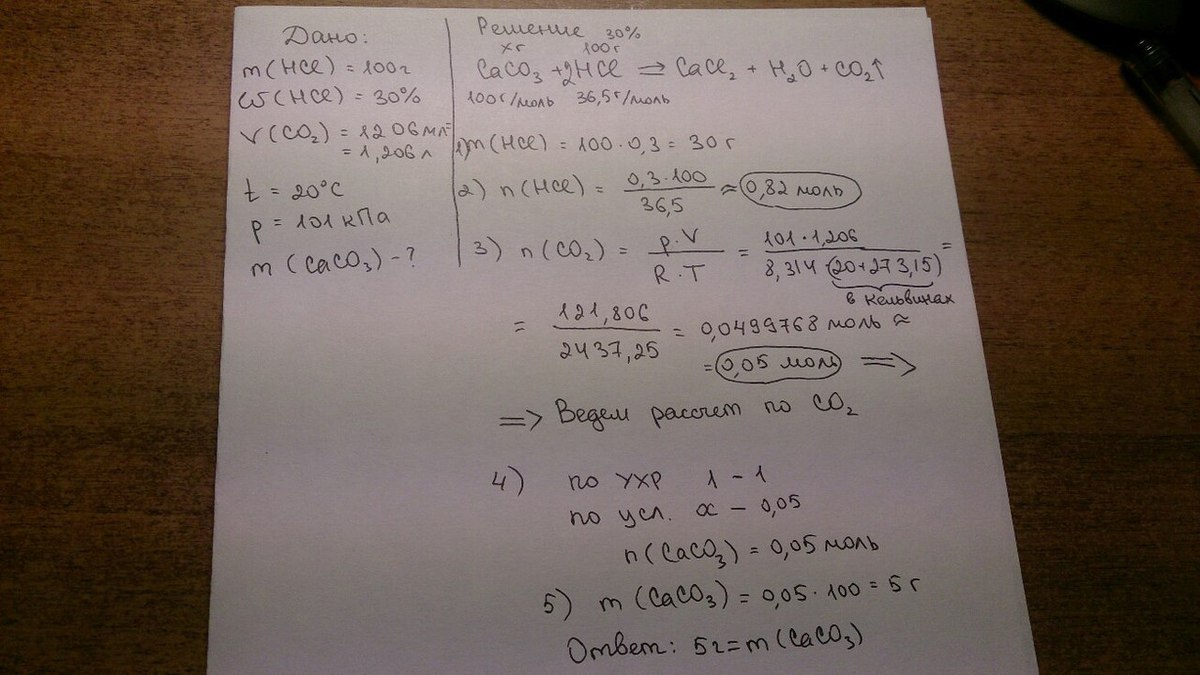 Дано:
m(HCl) = 100г
ω(HCl) = 30%
V(CO₂) = 1206мл=
= 1,206л
t = 20°C
p = 101 кПа
m (CaCO₃) - ?
Решение 30%
xг 100г
CaCO₃ + 2HCl ⇒ CaCl₂ + H₂O + CO₂↑
100г/моль 36,5г/моль
1) m(HCl) = 100 · 0,3 = 30 г
2) n(HCl) = 0,3·100 / 36,5 ≈ 0,82 моль
3) n(CO₂) = p·V / R·T = 101·1,206 / 8,314·(20+273,15) =
в кельвинах
= 121,806 / 2437,25 = 0,0499768 моль ≈
= 0,05 моль ⇒
⇒ Ведем рассчет по CO₂
4) по УХР 1 - 1
по усл. x - 0,05
n(CaCO₃) = 0,05 моль
5) m (CaCO₃) = 0,05 · 100 = 5 г
Ответ: 5г = m(CaCO₃)